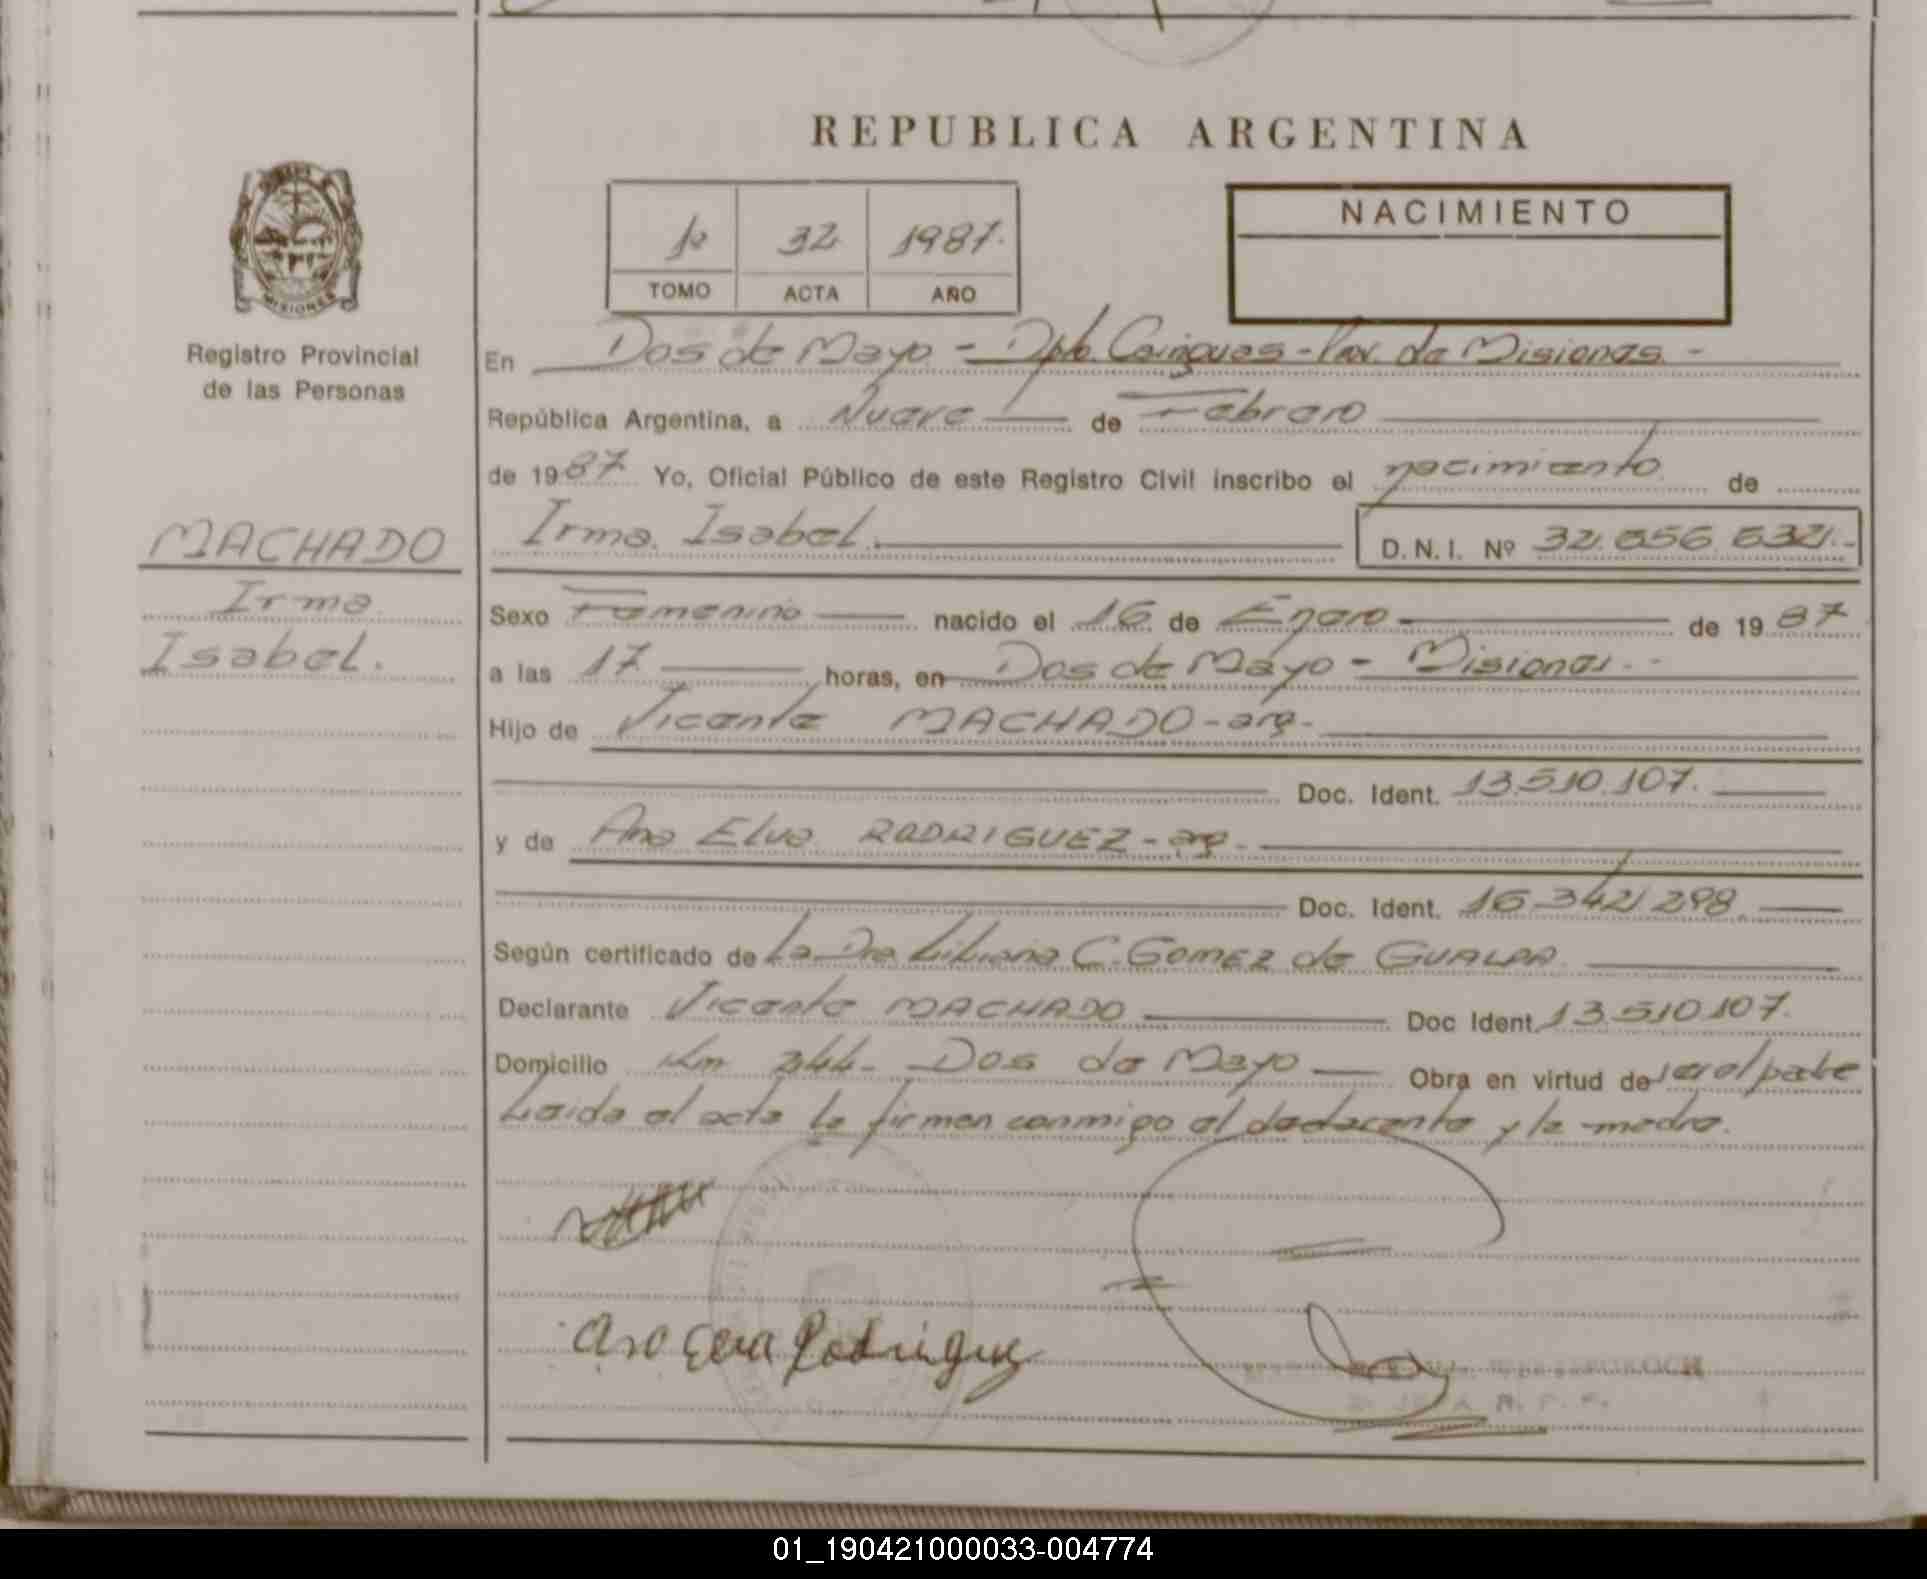 REPUBLICA ARGENTINA
1º 32 1987.
TOMO ACTA AÑO
NACIMIENTO
MISIONES
Registro Provincial
de las Personas
En Dos de Mayo - Dpto. Cainguas - Prov. de Misiones. -
República Argentina, a Nueve de Febrero
de 1987 Yo, Oficial Público de este Registro Civil inscribo el nacimiento de
MACHADO
Irma
Isabel.
Irma Isabel. D.N.I. Nº 32.856.
Sexo Femenino nacido el 16 de Enero de 1987
a las 17 horas, en Dos de Mayo - Misiones. -
Hijo de Vicente MACHADO - arg -
Doc. Ident. 13.510.107.
y de Ana Elva RODRIGUEZ - arg -
Doc. Ident. 16.342.298.
Según certificado de La Dra Liliana C. GOMEZ de GUALPA
Declarante Vicente MACHADO Doc Ident. 13.510.107.
Domicilio Km 244 - Dos de Mayo Obra en virtud de ser el padre
Leida el acta la firman conmigo el declarante y la madre.
Ana Elva Rodriguez
01_190421000033-004774